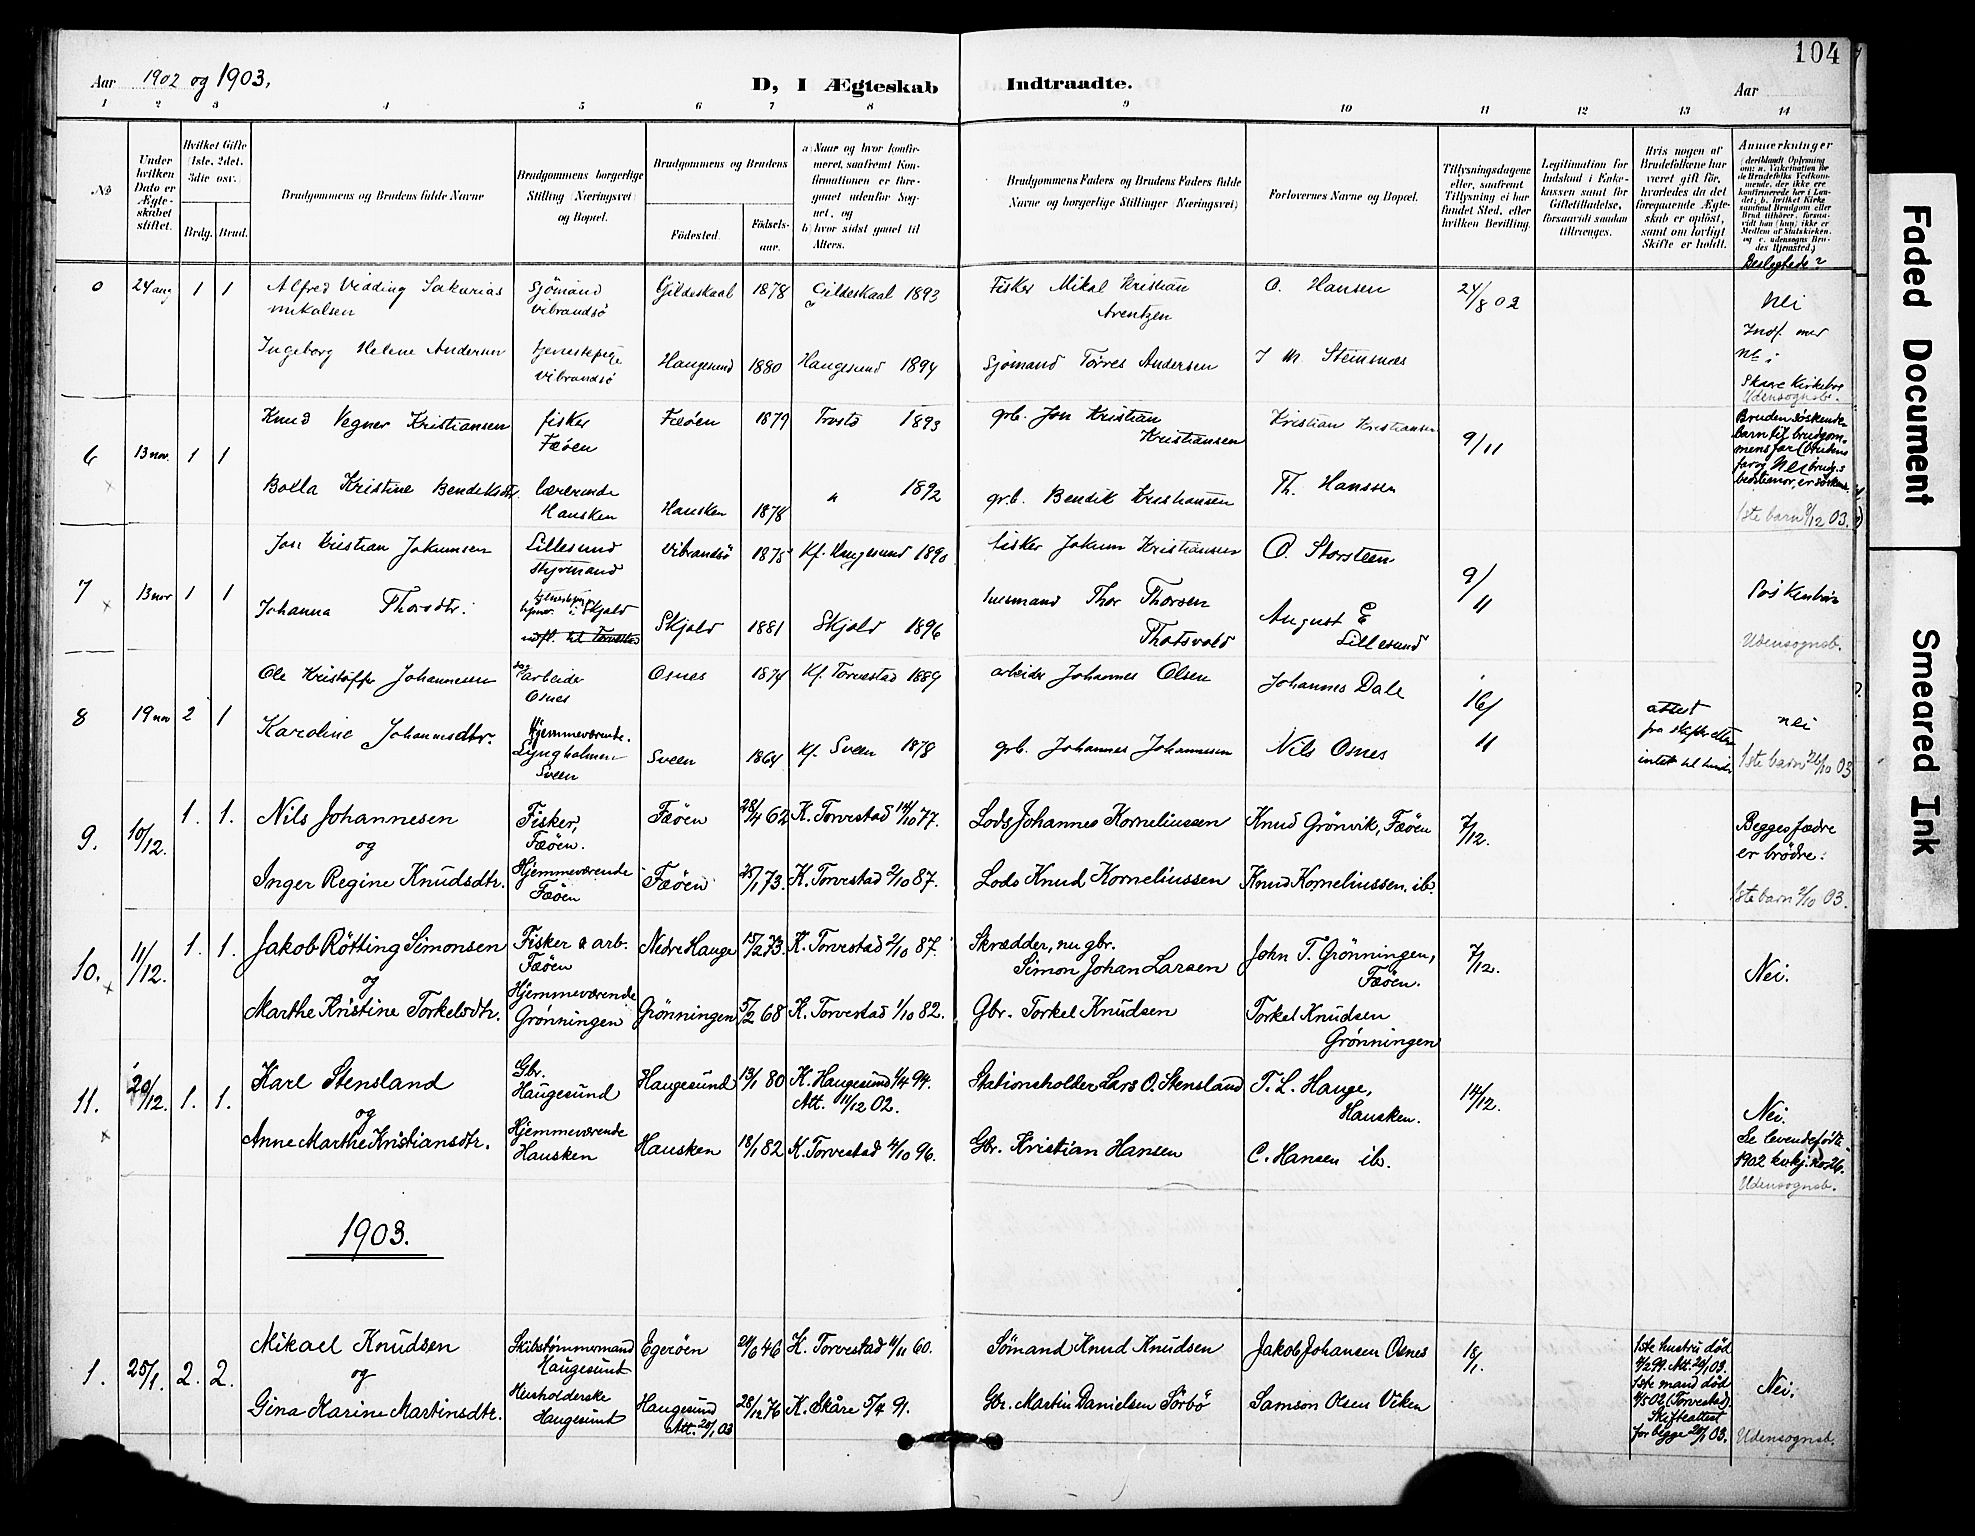 104
Aar 1902 og 1903.
D, I Ægteskab Indtraadte.
Aar
1 2 3 4 5 6 7 8 9 10 11 12 13 14
No
Under hvilken Dato er Ægteskabet stiftet.
Hvilket Gifte (1ste, 2det, 3die osv.)
Brdg. Brud.
Brudgommens og Brudens fulde Navne
Brudgommens borgerlige Stilling (Næringsvei) og Bopæl.
Brudgommens og Brudens
Födested.
Födselsaar.
a) Naar og hvor konfirmeret, saafremt Konfirmationen er foregaaet udenfor Sognet, og
b) hvor sidst gaaet til Alters.
Brudgommens Faders og Brudens Faders fulde Navne og borgerlige Stillinger (Næringsvei)
Forlovernes Navne og Bopæl.
Tillysningsdagene eller, saafremt Tillysning ei har fundet Sted, efter hvilken Bevilling.
Legitimation for Indskud i Enkekassen samt for Giftetilladelse, forsaavidt saadan tiltrænges.
Hvis nogen af Brudefolkene har været gift før, hvorledes da det foregaaende Ægteskab er opløst, samt om lovligt Skifte er holdt.
Anmerkninger
Beslegtede?
0 24 aug 1 1 Alfred Vidding Sakarias Mikalsen
Sjömand Vibrandsö
Gildeskaal 1878 Gildeskaal 1893
Fisker Mikal Kristian Arentzen
O. Hansen
24/8 02
Nei
Ingeborg Helene Andersen
tjenestepige Vibrandsö
Haugesund 1880 Haugesund 1894
Sjömand Torres Andersen
J M. Stemnes
Indf. med
Skaare Kirkebog
Udensognsb.
6 13 nov. 1 1 Knud Vegner Kristiansen
fisker Fæöen
Fæöen 1879 1893
grb. Jon Kristian Kristiansen
Kristian Kristiansen
9/11
Bruden söskendebarn til brudgommens far
Nei
Bolla Kristine Bendiksdtr.
lærerinde Hausken
Hausken 1878 " 1892
grb. Bendik Kristiansen
Th. Hanssen
1ste barn 9/12 03.
7 13 nov 1 1 Jon Kristian Johannsen
Lillesund Styrmand
Vibrandsö 1875 Kf. Haugesund 1890
fisker Johann Kristiansen
O. Storsteen
9/11
Söskenbörn
Johanna Thorsdtr.
Skjold
Skjold 1881 Skjold 1896
husmand Thor Thorsen Thotsvold
August E Lillesund
Udensognsb.
8 19 nov 2 1 Ole Kristoffer Johannesen
arbeider Osnes
Osnes 1874 Kf. Torvestad 1889
arbeider Johannes Olsen
Johannes Dale
16/11
attest fra skifteretten intet til hinder
nei
Karoline Johannsdtr.
Hjemmeværende. Lyngholmen Sveen
Sveen 1864 Kf. Sveen 1878
grb. Johannes Johannesen
Nils Osnes
1ste barn 26/10 03
9. 10/12. 1. 1. Nils Johannesen
og
Fisker, Fæöen.
Fæöen 28/4 62 K. Torvestad 14/10 77.
Lods Johannes Korneliussen
Knud Grönvik, Fæöen
7/12.
Begges fædre er brödre.
Inger Regine Knudsdtr.
Hjemmeværende Fæöen
Fæöen 25/1 73. K. Torvestad 2/10 87.
Lods Knud Korneliussen
Knud Korneliussen. ib.
1ste barn 2/10 03.
10. 11/12. 1. 1. Jakob Rötting Simonsen
og
Fisker & arb. Fæöen
Nedre Hauge 15/2 73. K. Torvestad 2/10 87.
Skrædder, nu gbr. Simon Johan Larsen
John T. Grönningen, Fæöen.
7/12.
Nei.
Marthe Kristine Torkelsdtr.
Hjemmeværende Grönningen
Grönningen 5/2 68 K. Torvestad 1/10 82.
Gbr. Torkel Knudsen
Torkel Knudsen Grönningen
11. 20/12. 1. 1. Karl Stensland
og
Gbr. Haugesund
Haugesund 13/1 80 K. Haugesund 1/4 94. Att. 11/12 02.
Stationsholder Lars O. Stensland
T. L. Hauge, Hausken.
14/12.
Nei.
Se levendefödte 1902 kvkj. No 26.
Anne Marthe Kristiansdtr.
Hjemmeværende Hausken
Hausken 18/1 82 K. Torvestad 4/10 96.
Gbr. Kristian Hansen
C. Hansen ib.
Udensognsb.
1903.
1. 25/1. 2. 2. Mikael Knudsen
og
Skibstømmermand Haugesunt
Egeröen 24/6 46 K. Torvestad 4/11 60.
Sömand Knud Knudsen
Jakob Johansen Osnes
18/1.
1ste hustru död 4/2 99. Att. 20/1 03.
1ste mand död 4/5 02 (Torvestad).
Skifteattest for begge 20/1 03.
Nei.
Gina Karine Martinsdtr.
Husholderske Haugesunt
Haugesund Att. 20/1 03
28/12 76 K. Skåre 5/4 91.
Gbr. Martin Danielsen Sörbö
Samson Olsen Viken
Udensognsb.
Faded Document
Smeared Ink